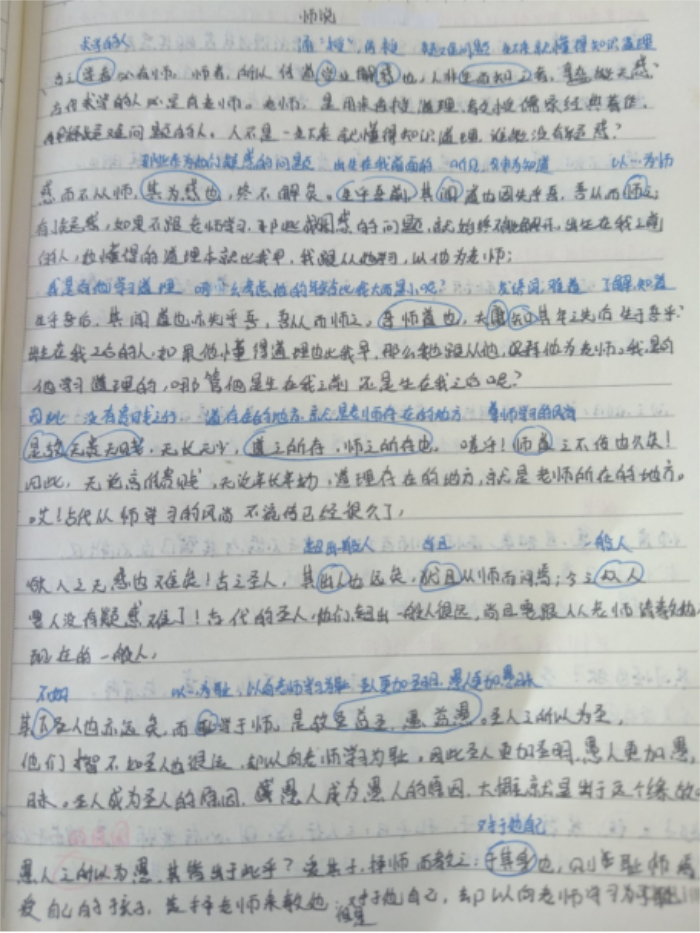 师说
求学的人 通“授”，传授 疑难问题 生下来就懂得知识道理
古之学者必有师。师者，所以传道受业解惑也。人非生而知之者，孰能无惑？
古代求学的人必定有老师。老师，是用来传授道理，教授儒家经典著作，
解释疑难问题的人。人不是一生下来就懂得知识道理，谁能没有疑惑？
那些作为他们疑惑的问题 出生在我前面的 以…为师
惑而不从师，其为惑也，终不解矣。生乎吾前，其闻道也固先乎吾，吾从而师之；
有疑惑，如果不跟老师学习，那些成困惑的问题，就始终不能解开。出生在我之前
的人，他懂得的道理本就比我早，我跟从他学习，以他为老师；
我是向他学习道理 哪 考虑他的年龄比我大而是小呢？ 发语词，难道 了解，知道
生乎吾后，其闻道也亦先乎吾，吾从而师之。吾师道也，夫庸知其年之先后生于吾乎？
出生在我之后的人，如果他懂得道理也比我早，那么我跟从他，老师。我是向
他学习道理的，哪管他是生在我之前还是生在我之后呢？
因此 没有贵贱之分 道存在的地方，就是老师存在的地方 尊师学习的风尚
是故无贵无贱，无长无少，道之所存，师之所存也。嗟乎！师道之不传也久矣！
因此，无论高低贵贱，无论年长年幼，道理存在的地方，就是老师所在的地方。
哎！古代从师学习的风尚不流传已经很久了，
超出一般人 尚且 一般人
欲人之无惑也难矣！古之圣人，其出人也远矣，犹且从师而问焉；今之众人
要人没有疑惑难了！古代的圣人，他们超出一般人很远，尚且要跟从老师请教
现在的一般人，
不如 以…为耻，以向老师学习为耻 圣人更加圣明，愚人更加愚昧
其下圣人也亦远矣，而耻学于师。是故圣益圣，愚益愚。圣人之所以为圣，
他们不如圣人也很远，却以向老师学习为耻。因此圣人更加圣明，愚人更加愚
昧。圣人成为圣人的原因，愚人成为愚人的原因，大概就是出于这个缘故
对于他自己
愚人之所以为愚，其皆出于此乎？爱其子，择师而教之；于其身也，则耻师焉
爱自己的孩子，选择老师来教他；对于他自己，却以向老师学习为